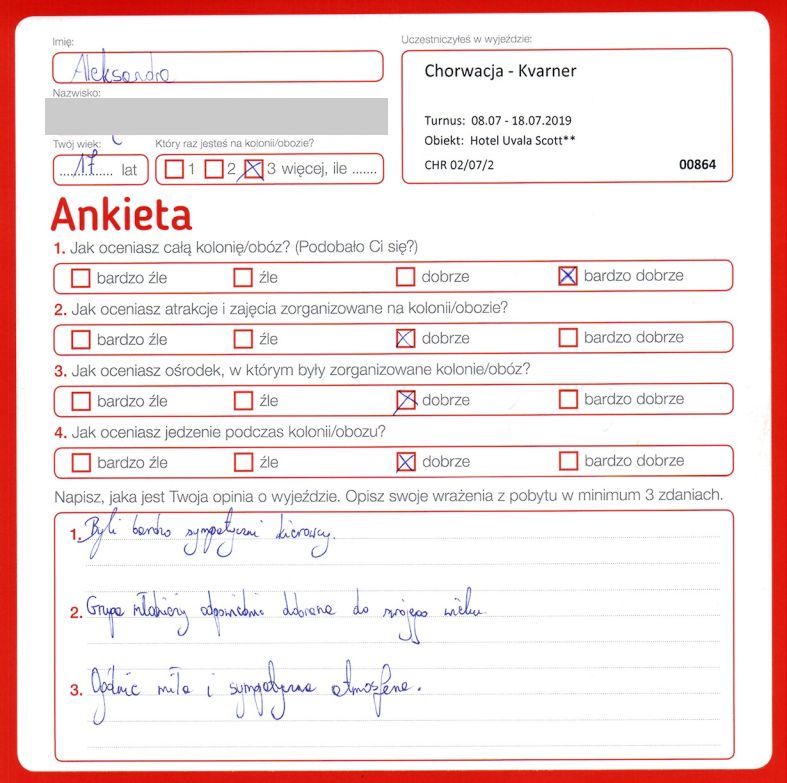 Imię:
Aleksandra
Nazwisko:
Twój wiek:
17 lat
Który raz jesteś na kolonii/obozie?
1 2 3 więcej, ile .......
Uczestniczyłeś w wyjeździe:
Chorwacja - Kvarner
Turnus: 08.07 - 18.07.2019
Obiekt: Hotel Uvala Scott**
CHR 02/07/2 00864
Ankieta
1. Jak oceniasz całą kolonię/obóz? (Podobało Ci się?)
bardzo źle źle dobrze bardzo dobrze
2. Jak oceniasz atrakcje i zajęcia zorganizowane na kolonii/obozie?
bardzo źle źle dobrze bardzo dobrze
3. Jak oceniasz ośrodek, w którym były zorganizowane kolonie/obóz?
bardzo źle źle dobrze bardzo dobrze
4. Jak oceniasz jedzenie podczas kolonii/obozu?
bardzo źle źle dobrze bardzo dobrze
Napisz, jaka jest Twoja opinia o wyjeździe. Opisz swoje wrażenia z pobytu w minimum 3 zdaniach.
1. Byli bardzo sympatyczni kierowcy.
2. Grupa młodzieży odpowiednio dobrana do swojego wieku
3. Ogólnie miła i sympatyczna atmosfera.